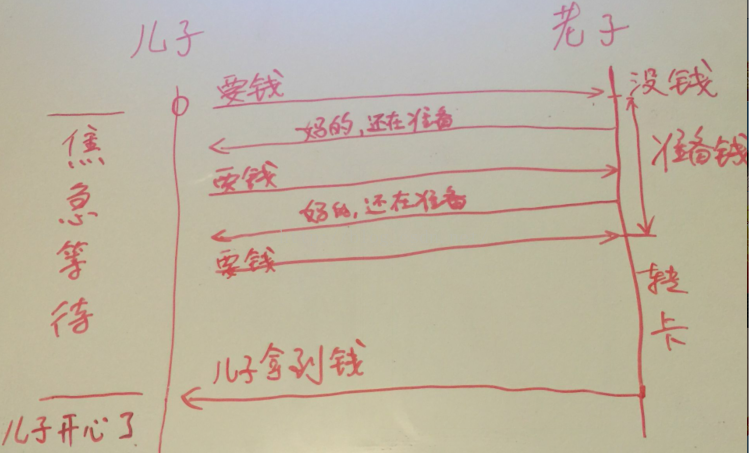 儿子
老子
要钱
没钱
好的,还在准备
准备钱
要钱
好的,还在准备
要钱
焦急等待
转卡
儿子拿到钱
儿子开心了